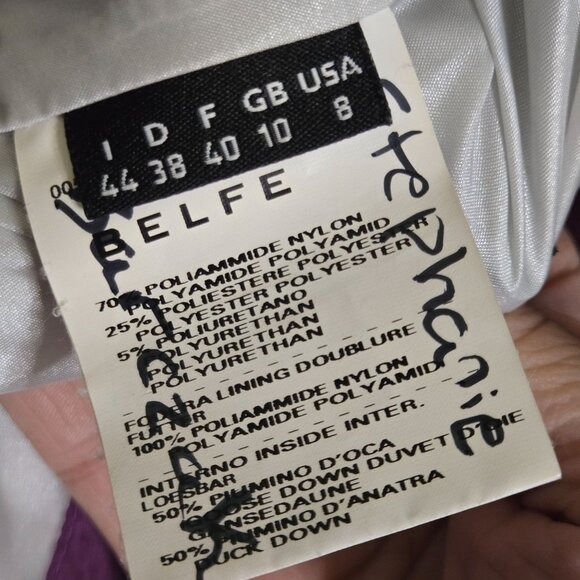 I D F GB USA
44 38 40 10 8
00
BELFE
70% POLIAMMIDE NYLON
POLYAMIDE POLYAMID
25% POLIESTERE POLYESTER
POLYESTER POLYESTER
5% POLIURETANO
POLYURETHAN
POLYURETHAN
POLYURETHAN
FODERA LINING DOUBLURE
FUTTER
100% POLIAMMIDE NYLON
POLYAMIDE POLYAMID
INTERNO INSIDE INTER.
LOESBAR
50% PIUMINO D'OCA
GOOSE DOWN DUVET D'OIE
GANSEDAUNE
50% PIUMINO D'ANATRA
DUCK DOWN
Stephanie